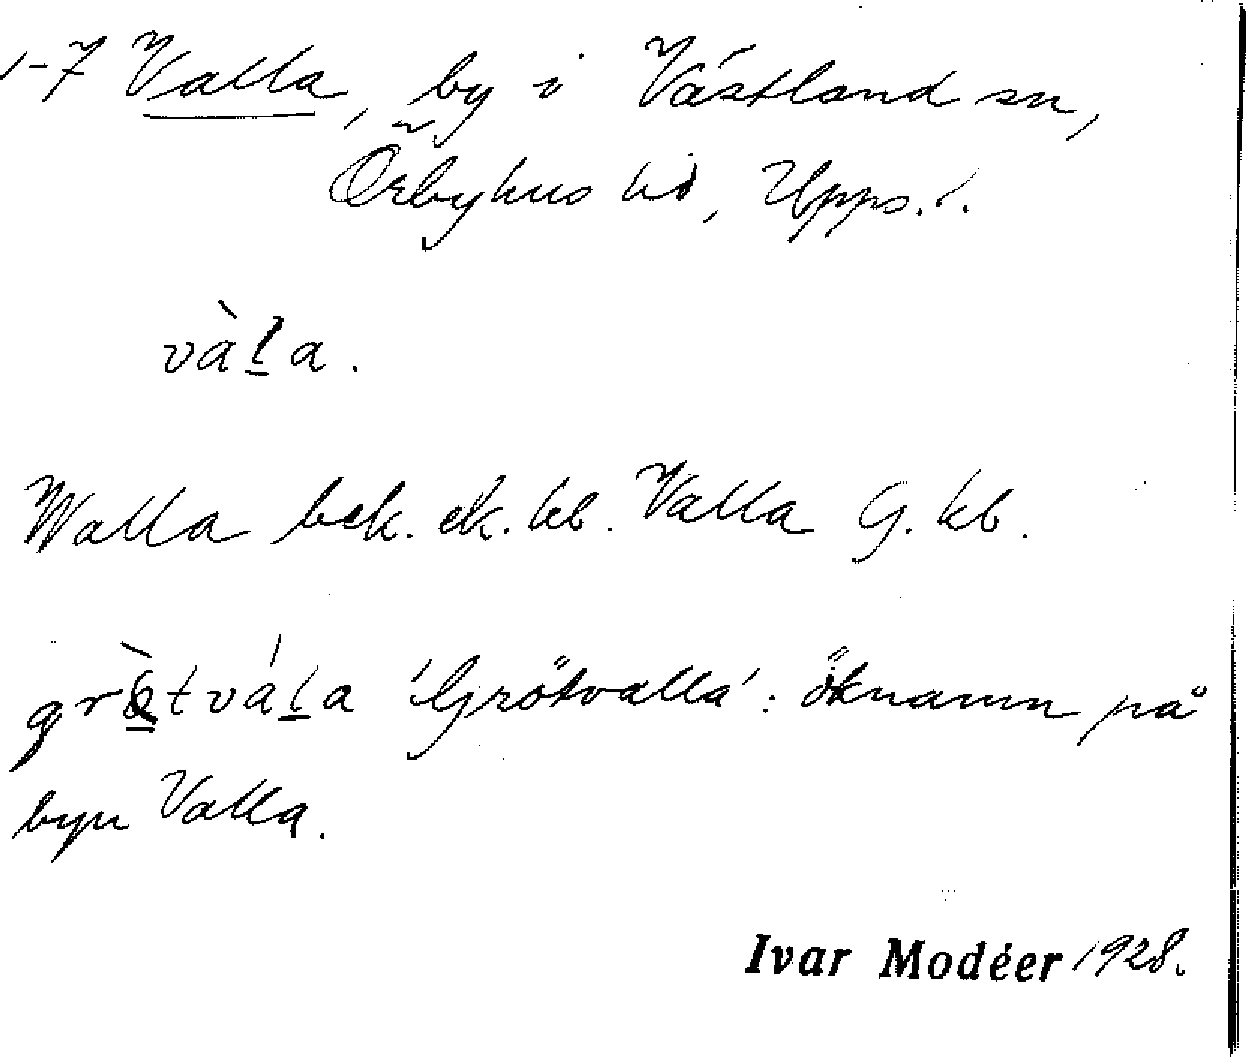 1-7 Valla, by i Västland sn,
Örbyhus hd, Upps. l.
vàl̲a.
Walla bek. ek. kb. Valla G. kb.
grö̀tvál̲a 'Grötvalla': öknamn på
byn Valla.
Ivar Modéer 1928.